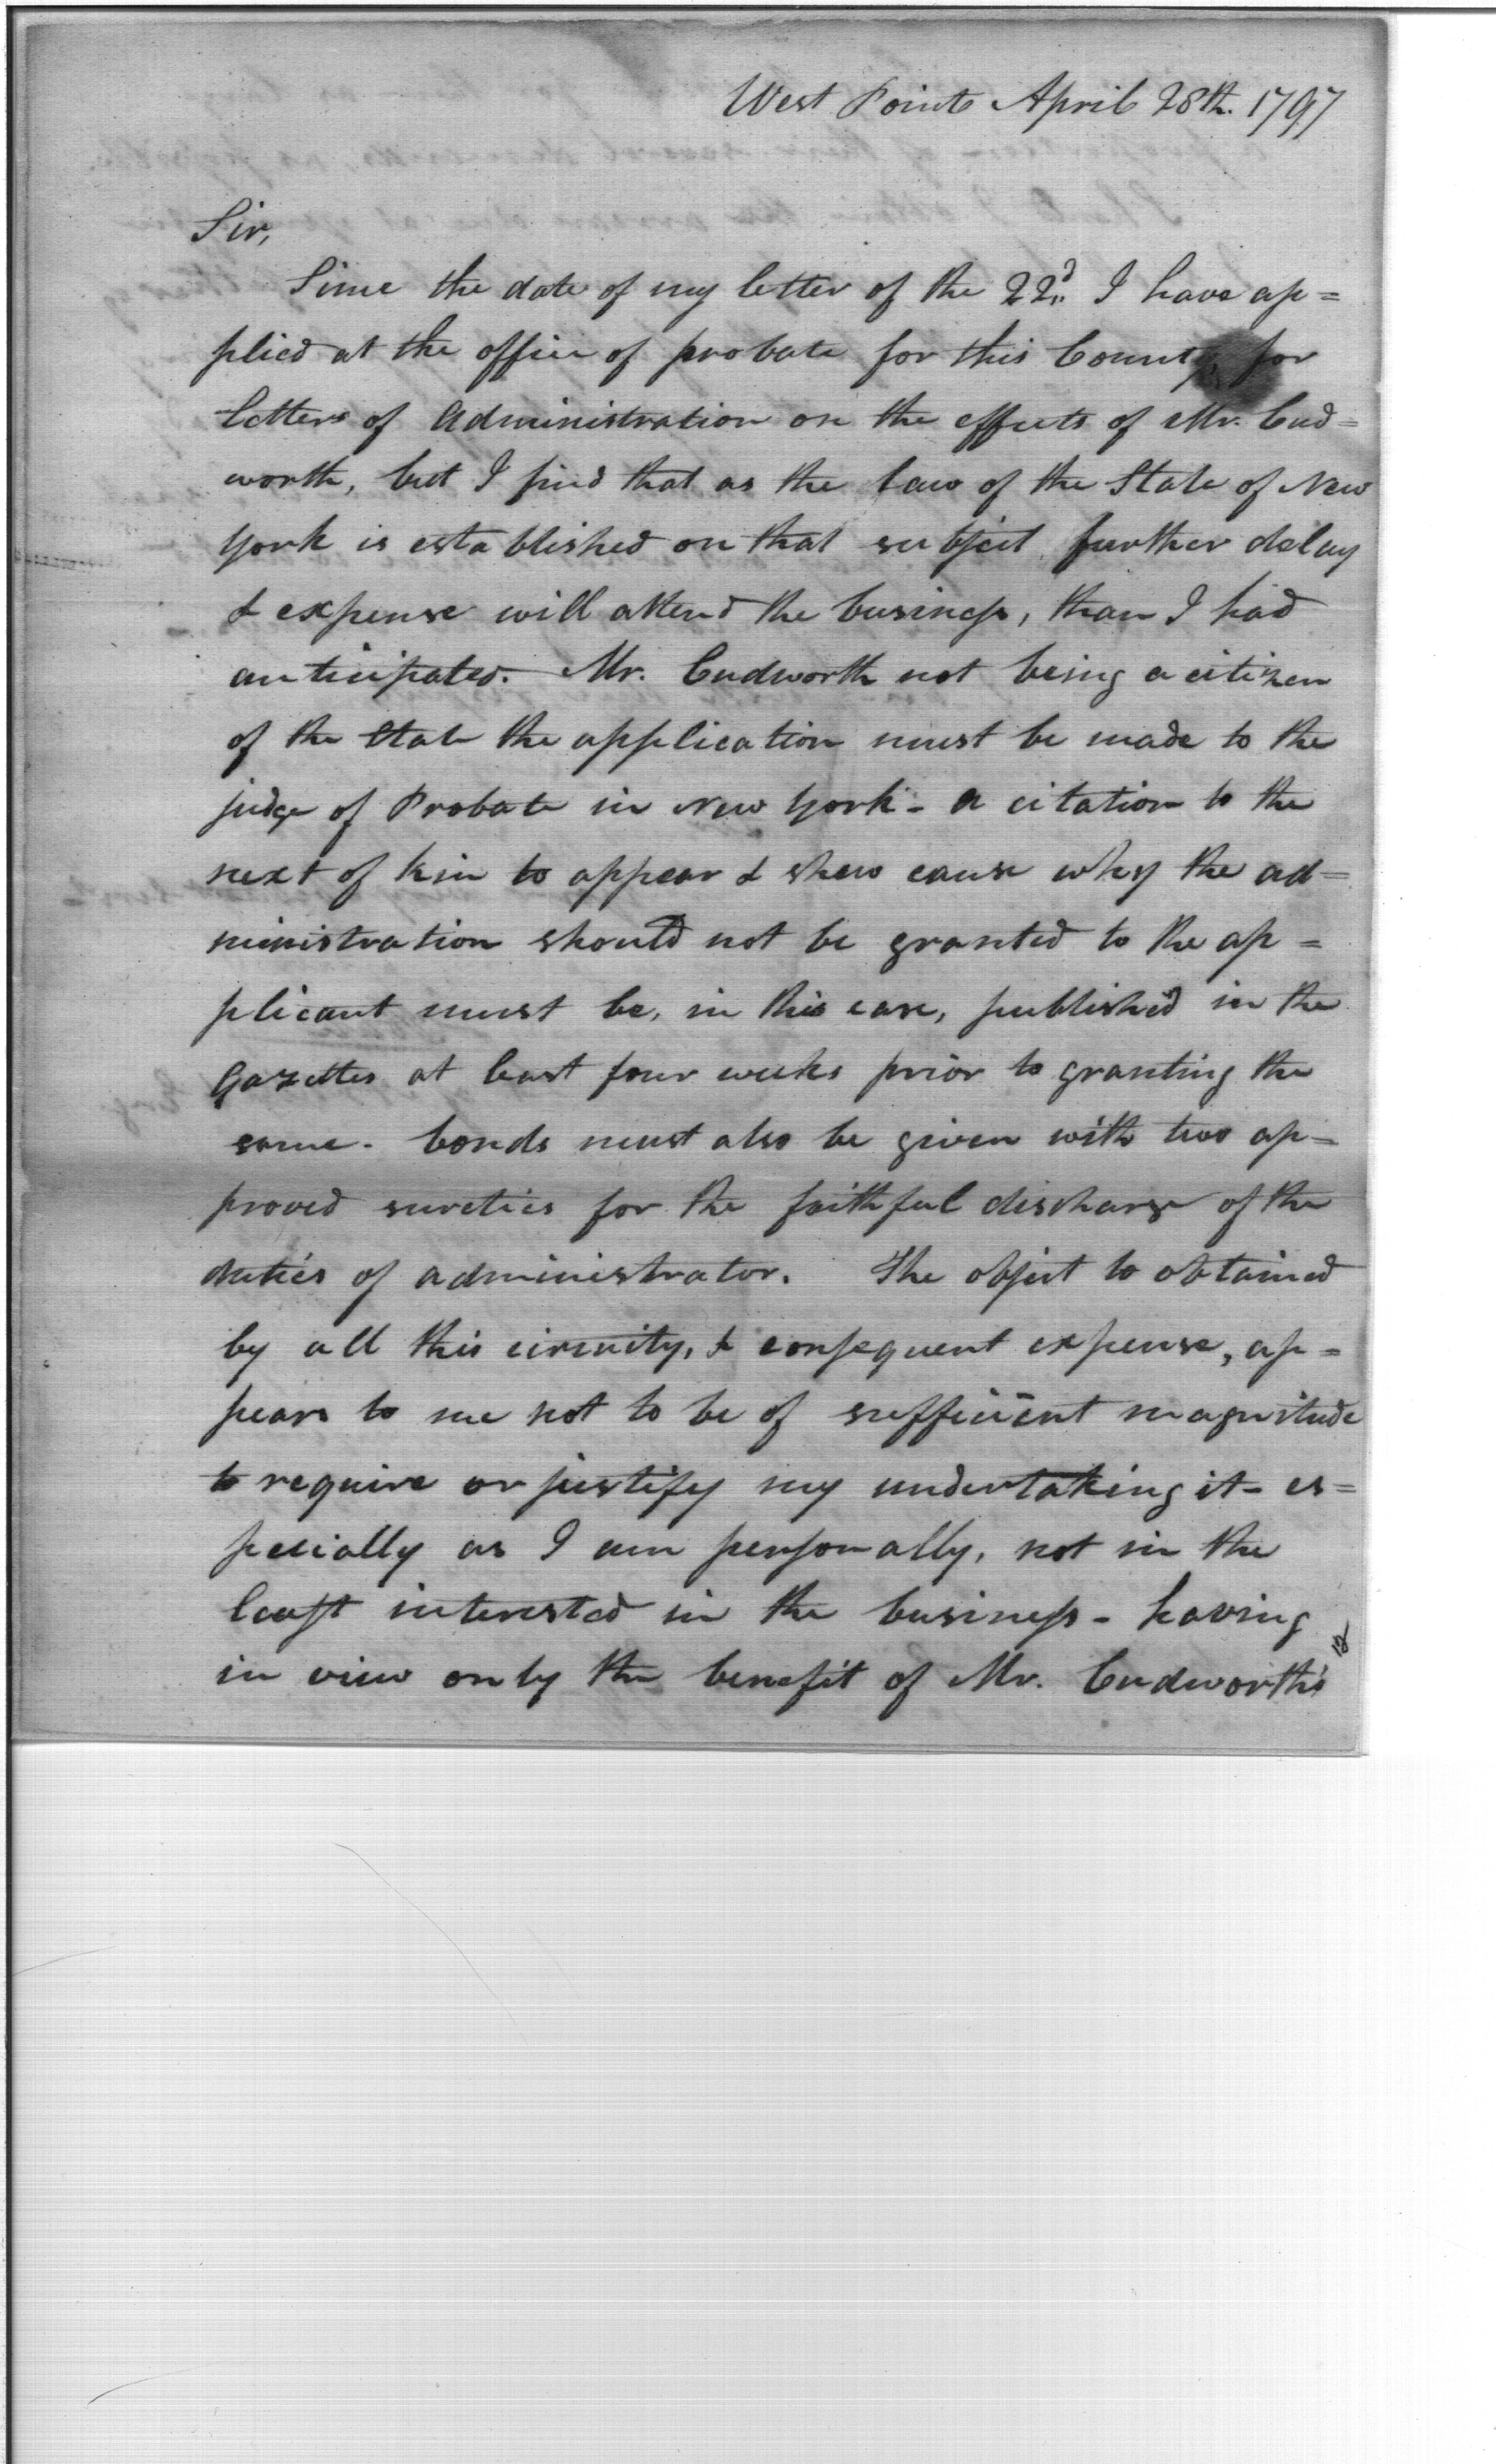 West Point April 28th. 1797
Sir,
Since the date of my letter of the 22d. I have ap=
plied at the office of probate for this County, for
letters of Administration on the effects of Mr. Cud=
worth, but I find that as the law of the State of New
York is established on that subject further delay
& expense will attend the business, than I had
anticipated. Mr. Cudworth not being a citizen
of the State the application must be made to the
judge of Probate in New York - a citation to the
next of kin to appear & shew cause why the ad=
ministration should not be granted to the ap=
plicant must be, in this case, published in the
Gazettes at least four weeks prior to granting the
same - bonds must also be given with two ap=
proved sureties for the faithful discharge of the
duties of administrator. The object to obtained
by all this circuity, & consequent expense, ap=
pears to me not to be of sufficient magnitude
to require or justify my undertaking it - es=
pecially as I am personally, not in the
least interested in the business - having
in view only the benefit of Mr. Cudworth's